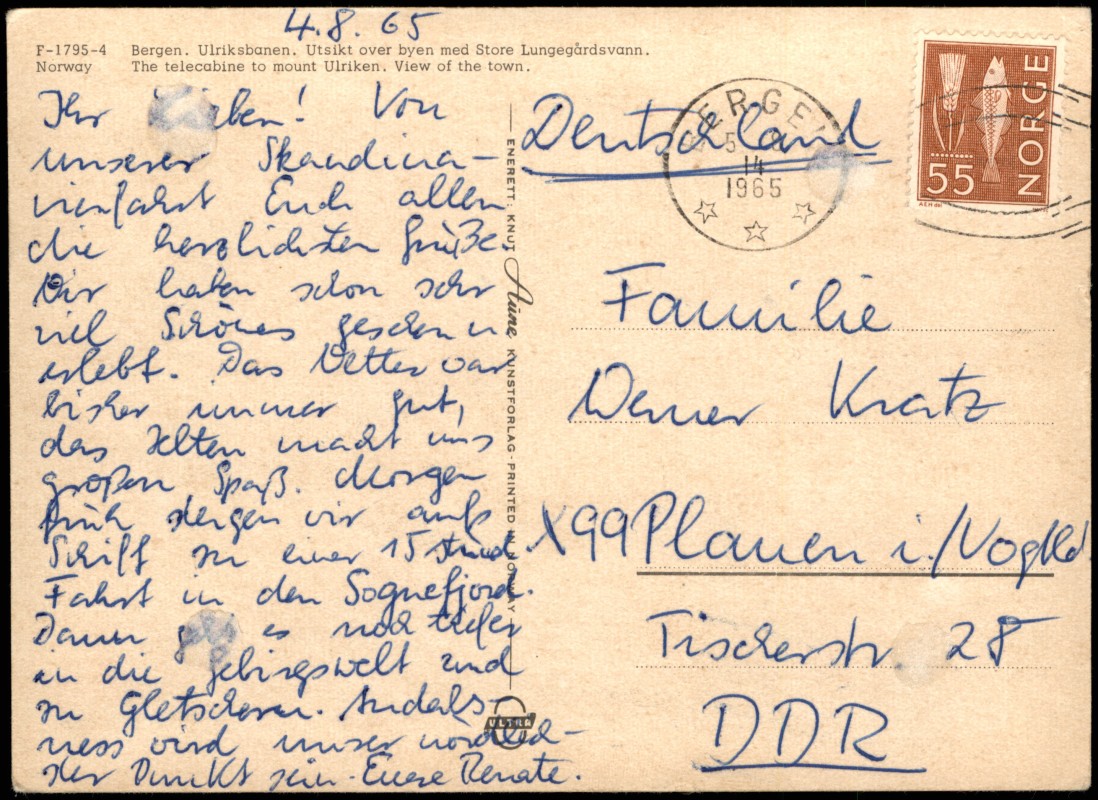 4.8.65
F-1795-4 Bergen. Ulriksbanen. Utsikt over byen med Store Lungegårdsvann.
Norway The telecabine to mount Ulriken. View of the town.
Ihr Lieben! Von
unserer Skandina-
vienfahrt Euch allen
die herzlichsten Grüße.
Wir haben schon sehr
viel Schönes gesehen u
erlebt. Das Wetter war
bisher immer gut,
das Zelten macht uns
großen Spaß. Morgen
früh steigen wir aufs
Schiff zu einer 15 stünd.
Fahrt in den Sognefjord.
Dann geht es noch tiefer
in die Gebirgswelt und
zu Gletschern. Andals-
ness wird unser nördlich-
ster Punkt sein. Eure Renate.
ENERETT: KNUT Aune KUNSTFORLAG - PRINTED IN NORWAY
ULTRA
Deutschland
BERGEN
5
14
1965
NORGE
55
Familie
Werner Kratz
X99 Plauen i./Vogtld
Tischerstr 28
DDR